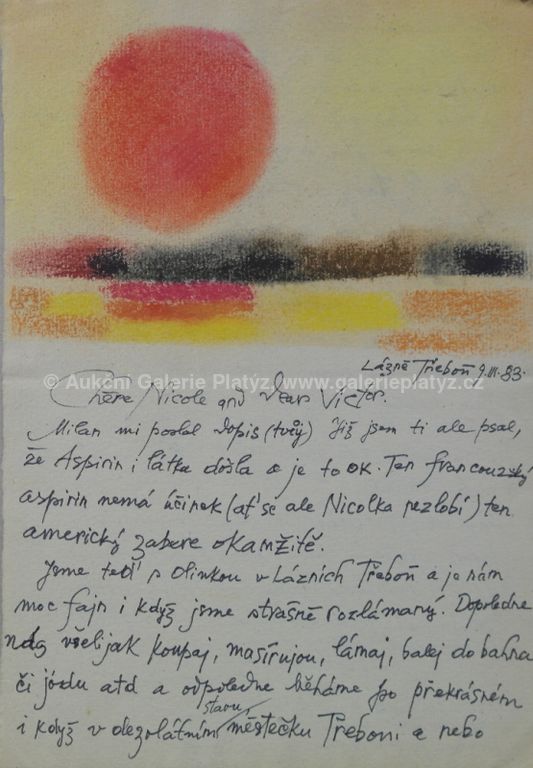 Lázně Třeboň 9.III.83.
© Aukční Galerie Platýz, www.galerieplatyz.cz
Chère Nicole and Dear Victor.
Milan mi poslal dopis (tvůj) Již jsem ti ale psal,
že Aspirin i látka došla a je to OK. Ten francouzský
aspirin nemá účinek (ať se ale Nicolka nezlobí) ten
americký zabere okamžitě.
Jsme teď s Olinkou v Lázních Třeboň a je nám
moc fajn i když jsme strašně rozlámaný. Dopoledne
nás všelijak koupaj, masírujou, lámaj, balej do bahna
či jódu atd a odpoledne běháme po překrásném
i když v dezolátním stavu městečku Třeboni a nebo